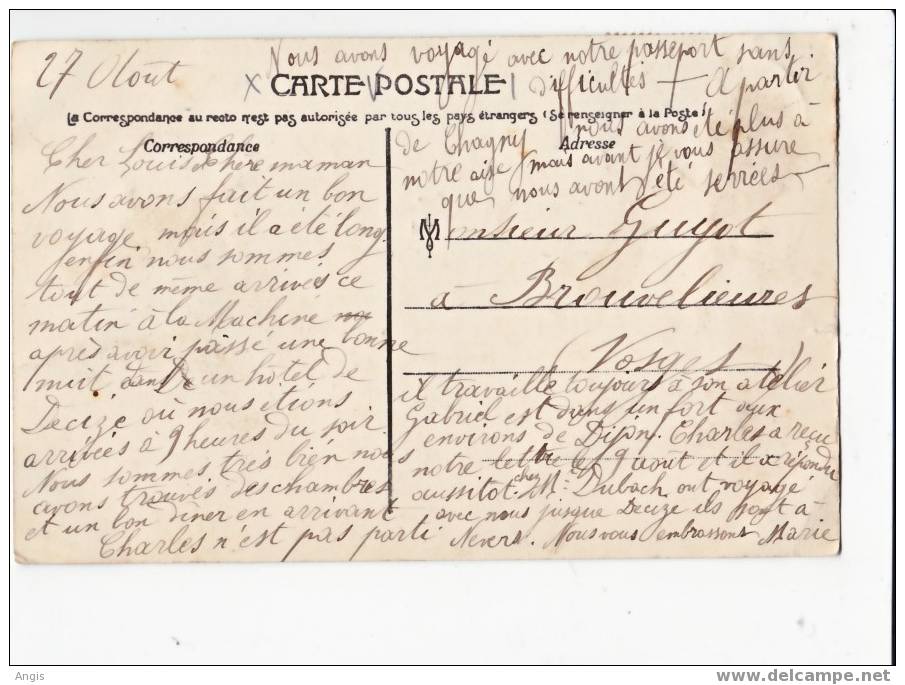 27 Aout
Nous avons voyagé avec notre passeport sans
difficultés — A partir
CARTE POSTALE
La Correspondance au recto n'est pas autorisée par tous les pays étrangers (Se renseigner à la Poste)
Correspondance
Adresse
de Chagny nous avons été plus à
notre aise mais avant je vous assure
que nous avont été serrées
Cher Louis Chere maman
Nous avons fait un bon
voyage mais il a été long
enfin nous sommes
tout de même arrivés ce
matin à la Machine
après avoir passé une bonne
nuit dans un hotel de
Decize où nous étions
arrivées à 9 heures du soir
Nous sommes très bien nous
avons trouvés des chambres
et un bon diner en arrivant
Charles n'est pas parti
Monsieur Guyot
à Brouvelieures
(Vosges)
il travaille toujours à son atelier
Gabriel est dans un fort aux
environs de Dijon. Charles a reçu
notre lettre le 9 aout et il a répondu
aussitot. chez Mme Dubach ont voyagé
avec nous jusque Decize ils sont à
Nevers. Nous vous embrassons Marie
Angis
www.delcampe.net